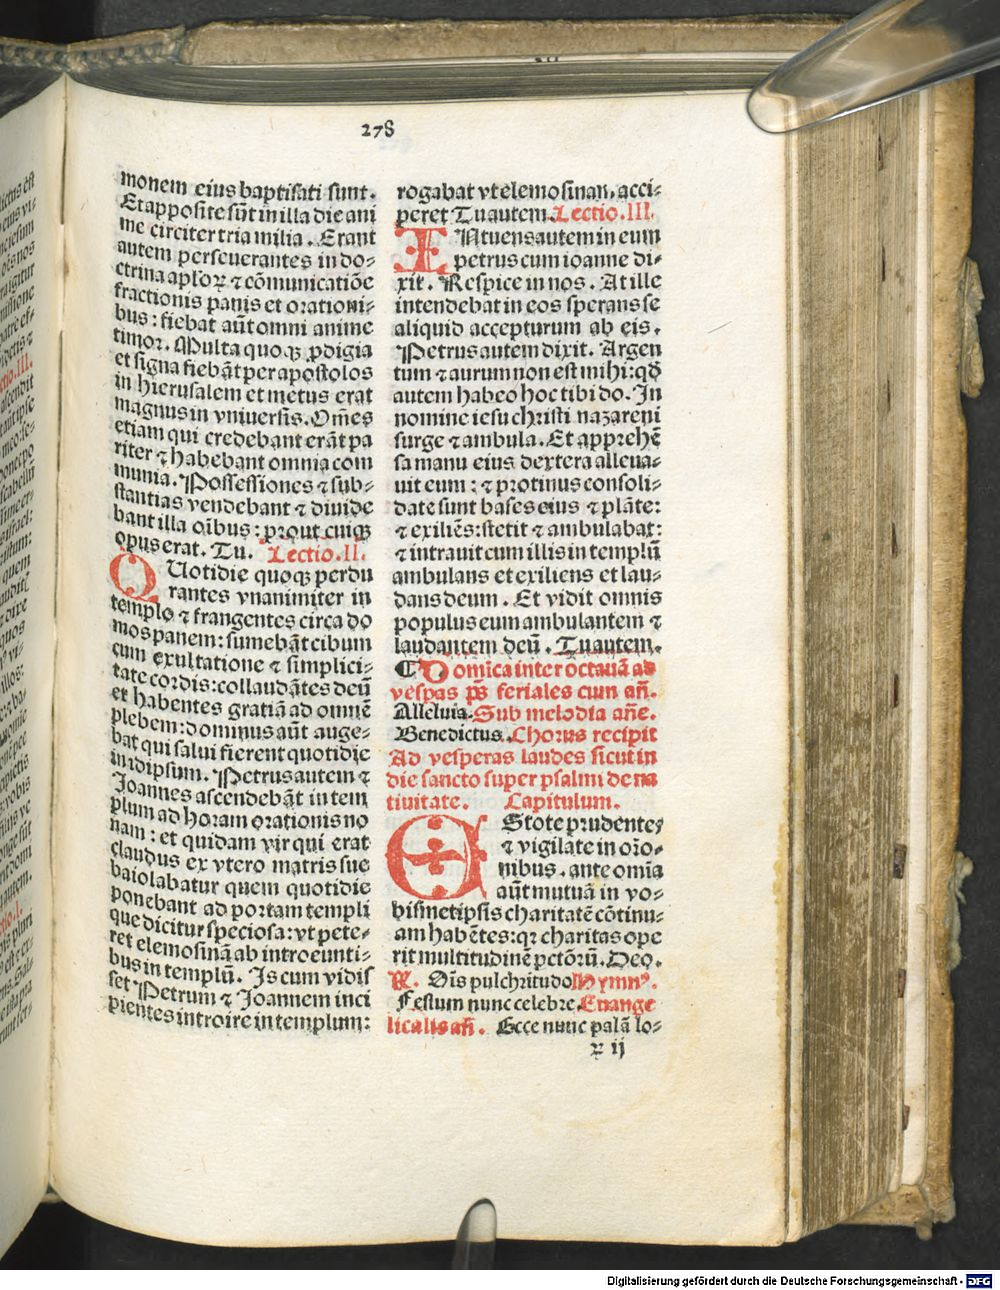 278
monem eius baptisati sunt.
Et apposite sūt in illa die ani
me circiter tria milia. Erant
autem perseuerantes in do⸗
ctrina aploꝝ ⁊ cōmunicatiōe
fractionis panis et orationi⸗
bus: fiebat aūt omni anime
timor. Multa quoqꝫ ꝓdigia
et signa fiebāt per apostolos
in hierusalem et metus erat
magnus in vniuersis. Om̄es
etiam qui credebant erāt pa
riter ⁊ habebant omnia com
munia. Possessiones ⁊ sub⸗
stantias vendebant ⁊ diuide
bant illa oībus: prout cuiqꝫ
opus erat. Tu. Lectio. II.
QUotidie quoqꝫ perdu
rantes vnanimiter in
templo ⁊ frangentes circa do
mos panem: sumebāt cibum
cum exultatione ⁊ simplici⸗
tate cordis: collaudātes deū
et habentes gratiā ad omnē
plebem: dominus aūt auge⸗
bat qui salui fierent quotidie
in idipsum. Petrus autem ⁊
Joannes ascendebāt in tem
plum ad horam orationis no
nam: et quidam vir qui erat
claudus ex vtero matris sue
baiolabatur quem quotidie
ponebant ad portam templi
que dicitur speciosa: vt pete⸗
ret elemosinā ab introeunti⸗
bus in templū. Is cum vidis
set Petrum ⁊ Joannem inci
pientes introire in templum:
rogabat vt elemosinam acci⸗
peret Tu autem. Lectio. III.
INtuens autem in eum
petrus cum ioanne di⸗
xit. Respice in nos. At ille
intendebat in eos sperans se
aliquid accepturum ab eis.
Petrus autem dixit. Argen
tum ⁊ aurum non est mihi: qd̄
autem habeo hoc tibi do. In
nomine iesu christi nazareni
surge ⁊ ambula. Et apprehē
sa manu eius dextera alleua⸗
uit eum: ⁊ protinus consoli⸗
date sunt bases eius ⁊ plāte:
⁊ exiliēs: stetit ⁊ ambulabat:
⁊ intrauit cum illis in templū
ambulans et exiliens et lau⸗
dans deum. Et vidit omnis
populus eum ambulantem ⁊
laudantem deū. Tu autem.
¶ Domīca inter octauā ad
vesp̄as ps̄ feriales cum añ.
Alleluia. Sub melodia añe.
Benedictus. Chorus recipit
Ad vesperas laudes sicut in
die sancto super psalmi de na
tiuitate. Capitulum.
EStote prudentes
⁊ vigilate in oro⸗
nibus. ante omīa
aūt mutuā in vo⸗
bismetipsis charitatē cōtinu⸗
am habētes: qꝛ charitas ope
rit multitudinē pctōrū. Deo.
R. Oīs pulchritudo Hymnꝰ.
Festum nunc celebre. Euange
licalis añ. Ecce nunc palā lo⸗
ꝝ ij
Digitalisierung gefördert durch die Deutsche Forschungsgemeinschaft - DFG